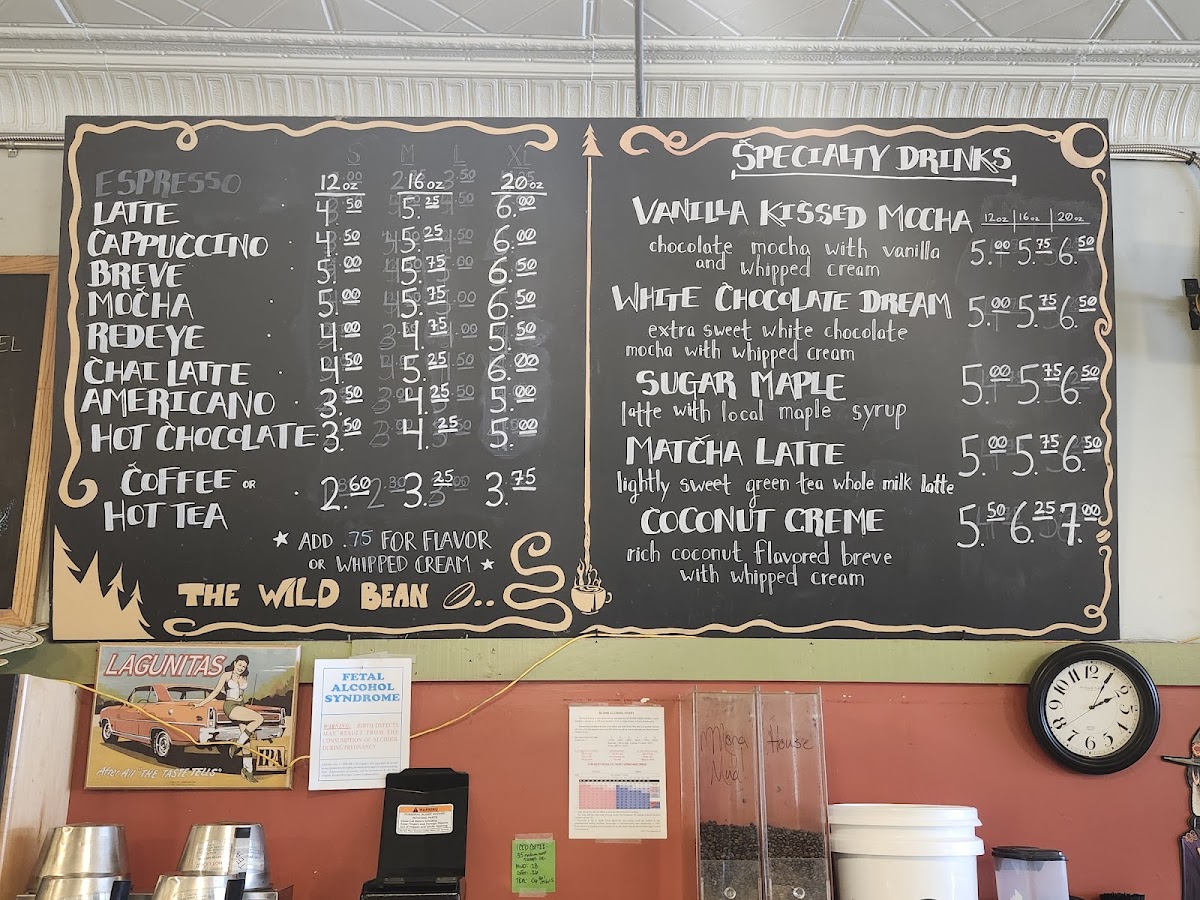 S M L XL
ESPRESSO 12oz 16oz 20oz
LATTE 4.50 5.25 6.00
CAPPUCCINO 4.50 5.25 6.00
BREVE 5.00 5.75 6.50
MOCHA 5.00 5.75 6.50
REDEYE 4.00 4.75 5.50
CHAI LATTE 4.50 5.25 6.00
AMERICANO 3.50 4.25 5.00
HOT CHOCOLATE 3.50 4.25 5.00
COFFEE OR
HOT TEA 2.60 3.25 3.75
ADD .75 FOR FLAVOR
OR WHIPPED CREAM
THE WILD BEAN
SPECIALTY DRINKS
VANILLA KISSED MOCHA 12oz 16oz 20oz
chocolate mocha with vanilla 5.00 5.75 6.50
and whipped cream
WHITE CHOCOLATE DREAM 5.00 5.75 6.50
extra sweet white chocolate
mocha with whipped cream
SUGAR MAPLE 5.00 5.75 6.50
latte with local maple syrup
MATCHA LATTE 5.00 5.75 6.50
lightly sweet green tea whole milk latte
COCONUT CREME 5.50 6.25 7.00
rich coconut flavored breve
with whipped cream
LAGUNITAS
IPA
After All "THE TASTE TELLS"
FETAL
ALCOHOL
SYNDROME
WARNING: BIRTH DEFECTS
MAY RESULT FROM THE
CONSUMPTION OF ALCOHOL
DURING PREGNANCY
Warning
ICED COFFEE
House
12 1 2 3 4 5 6 7 8 9 10 11